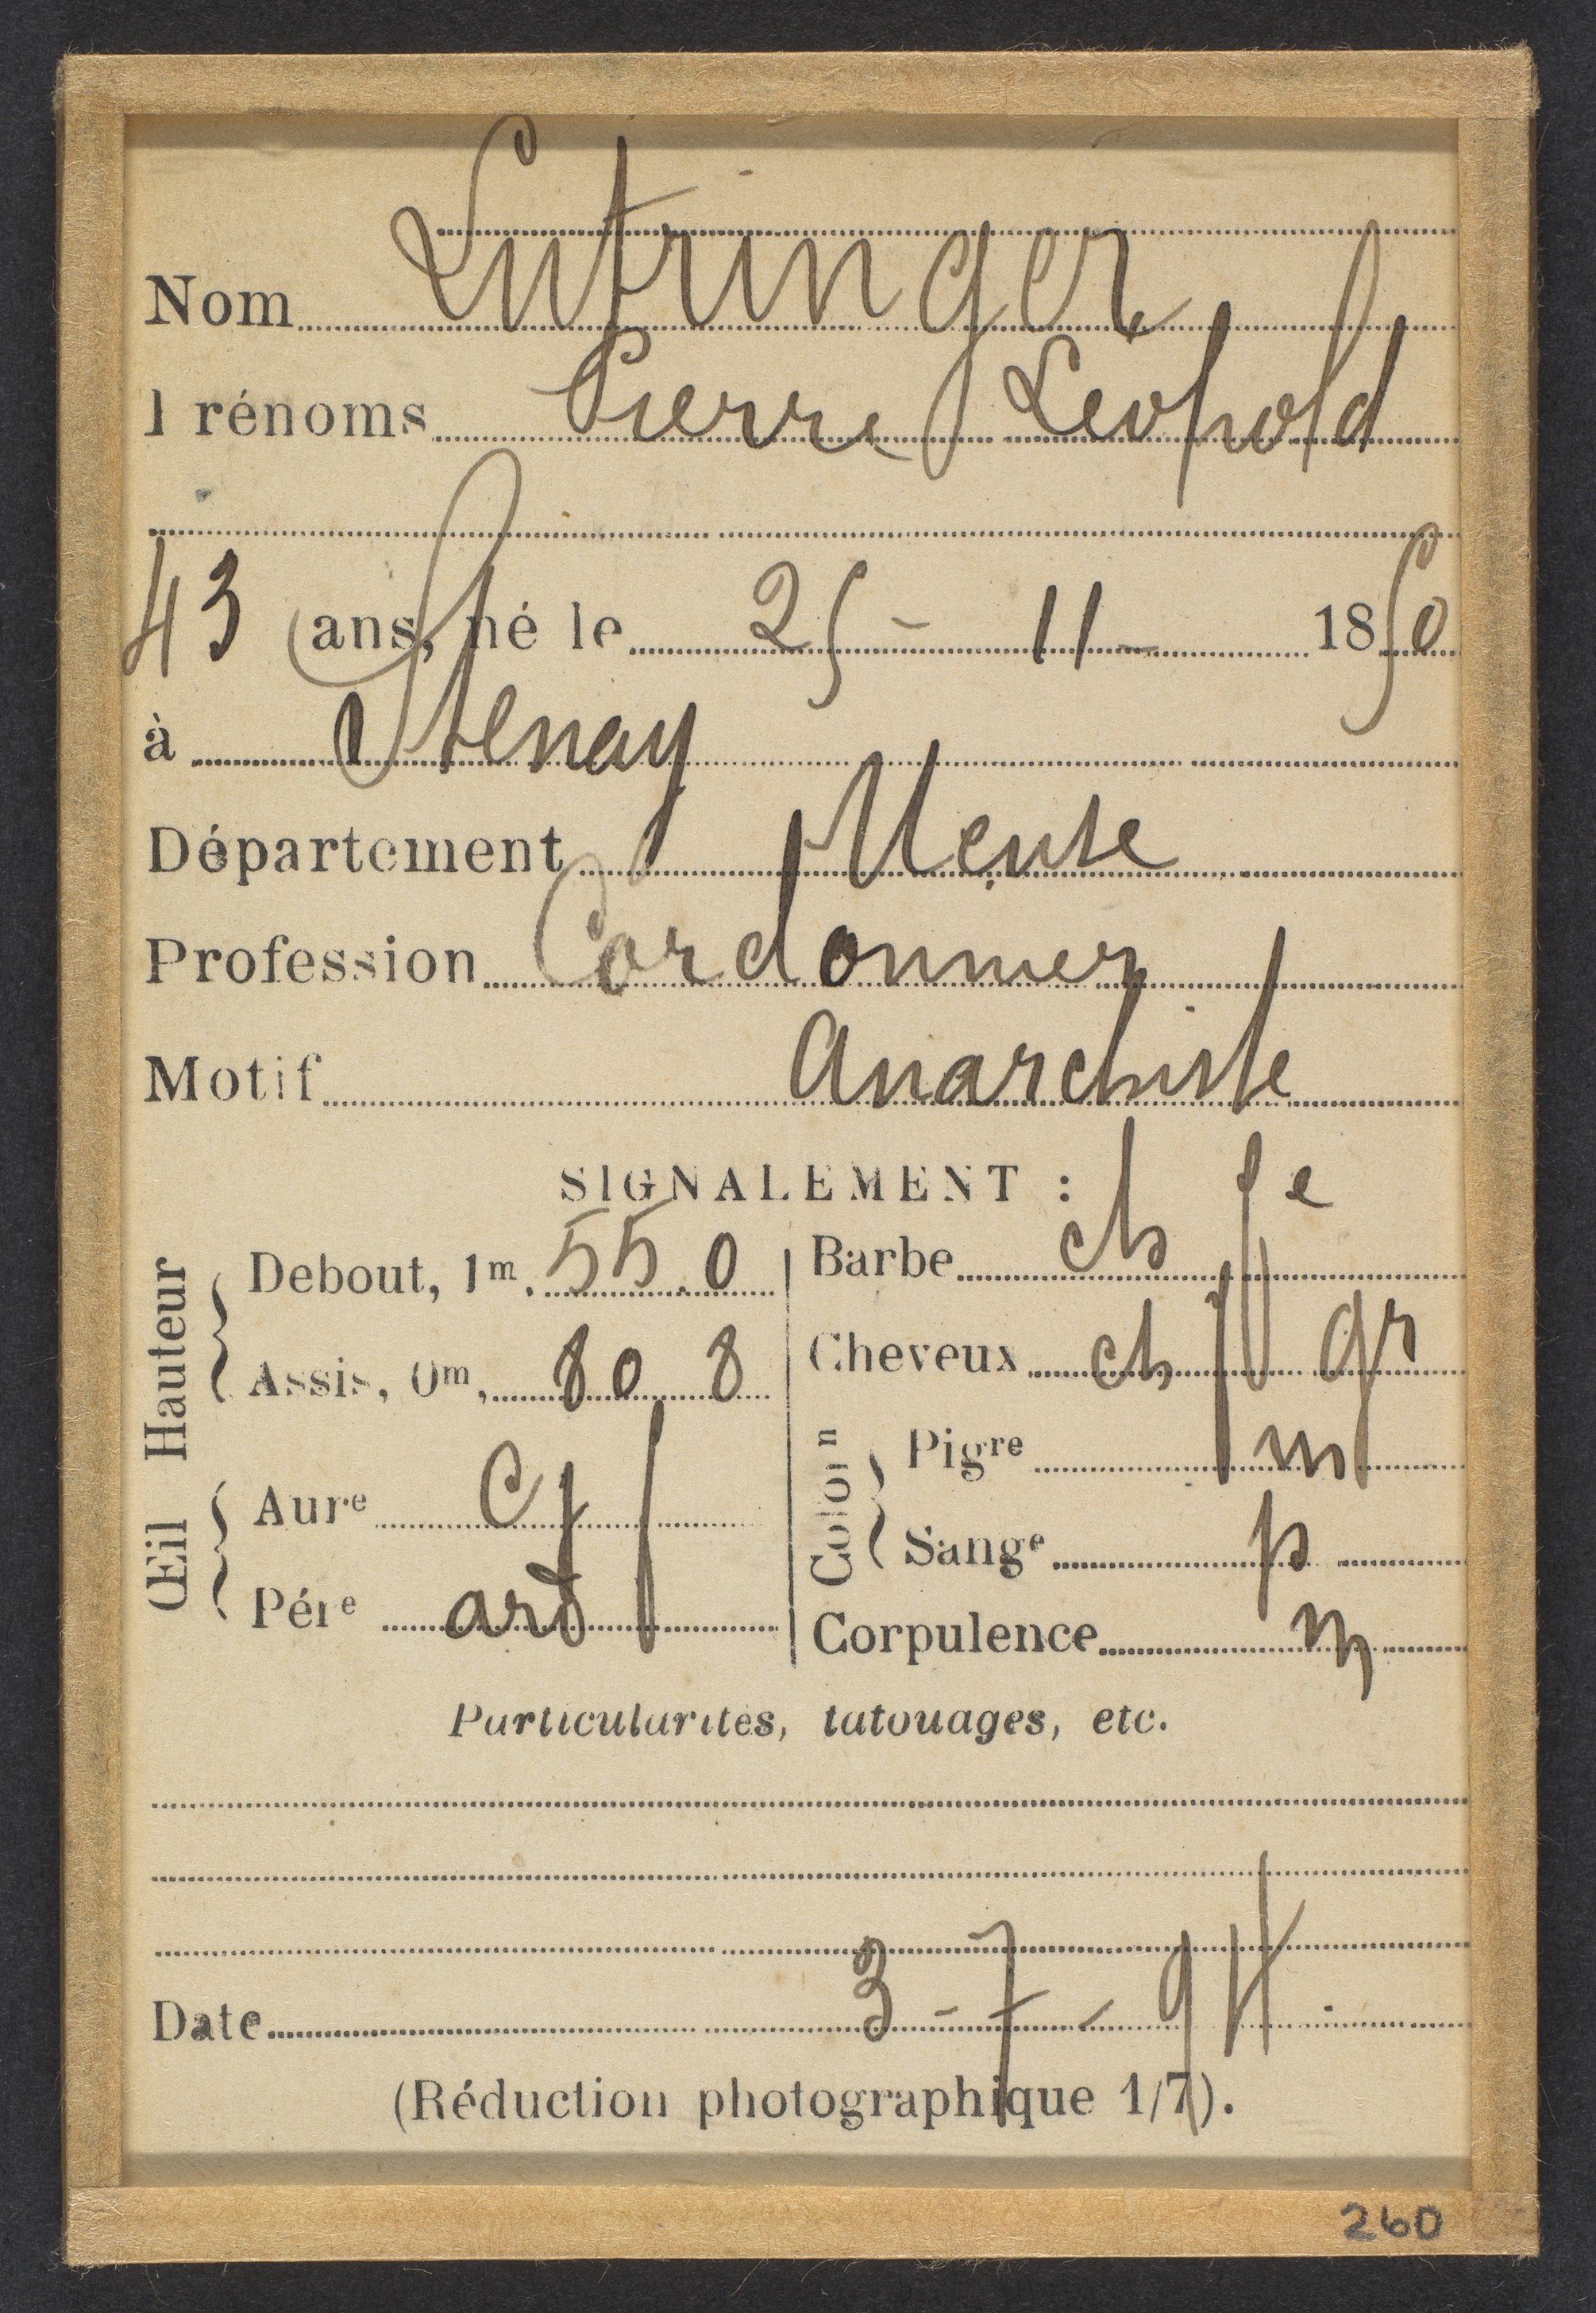 Nom Lutringer
Prénoms Pierre Leopold
43 ans, né le 25 - 11 - 1850
à Stenay
Département Meuse
Profession Cordonnier
Motif Anarchiste
SIGNALEMENT :
Hauteur
Debout, 1m, 55.0
Assis, 0m, 80 8
Œil
Aure C
Pére ard f
Barbe ch fe
Cheveux ch gr
Colon
Pigre m
Sange p
Corpulence m
Particularités, tatouages, etc.
Date 3 - 7 - 94
(Réduction photographique 1/7).
260